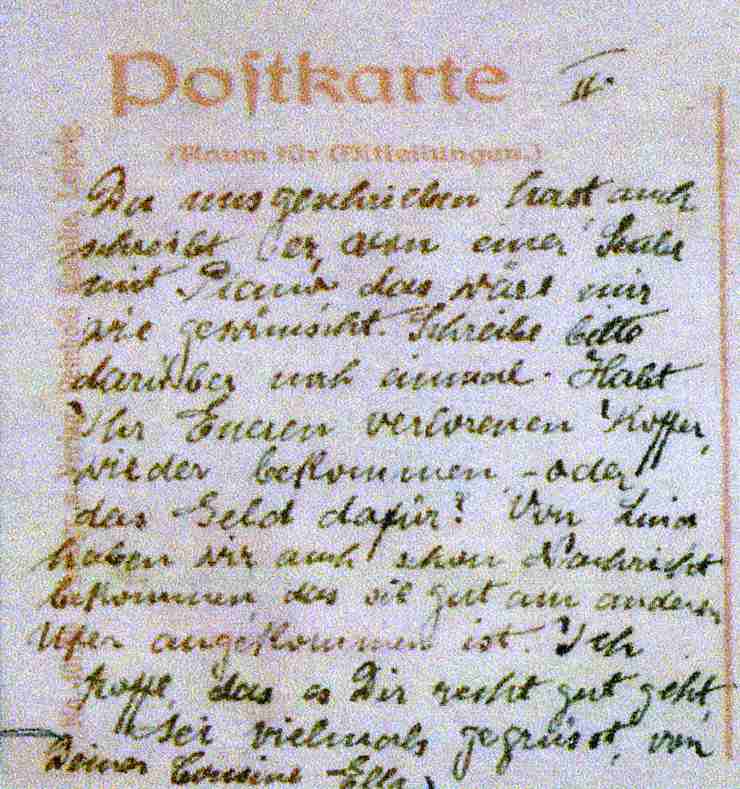 Postkarte II.
(Raum für Mitteilungen.)
Du uns geschrieben hast auch
schreibt er von einer Stube
mit Piano das wäre mir
wie gewünscht. Schreibe bitte
darüber noch einmal. Habt
Ihr Eueren verlorenen Koffer
wieder bekommen - oder
das Geld dafür? Von
haben wir auch schon Nachricht
bekommen, das sie gut am anderen
Ufer angekommen ist. Ich
hoffe, das es Dir recht gut geht,
Sei vielmals gegrüsst, von
Deiner Cousine Ella